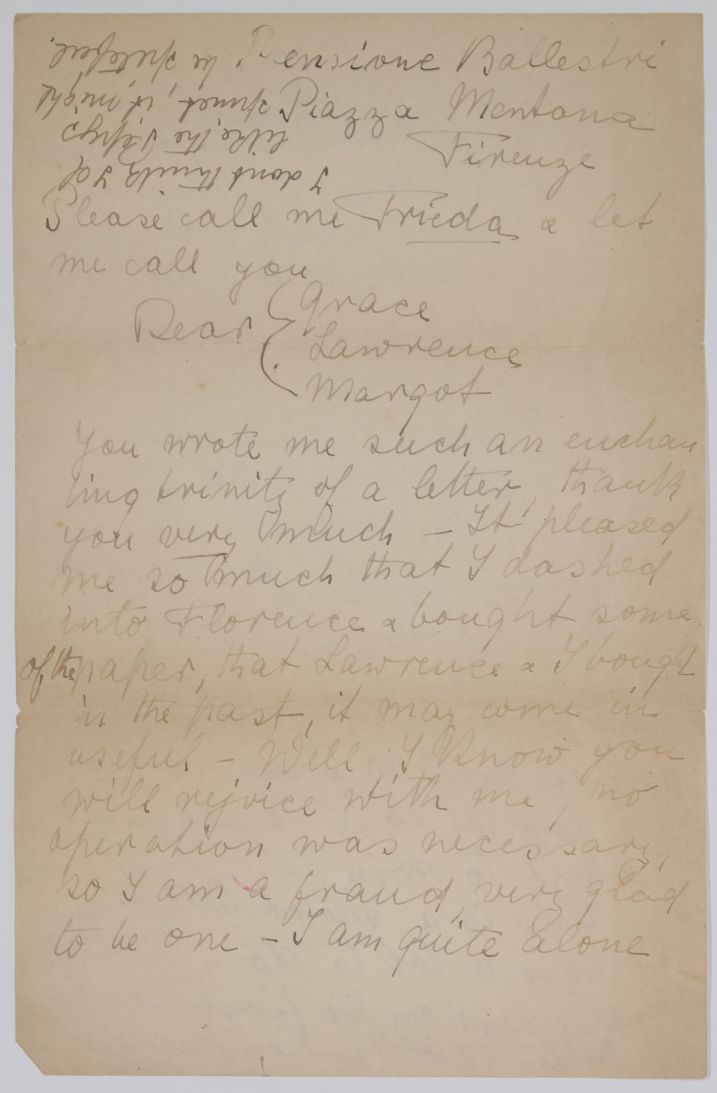 Pensione Ballestri
Piazza Mentana
Firenze
Please call me Frieda & let
me call you
Dear { Grace
Lawrence
Margot
You wrote me such an enchan
ting trinity of a letter, thank
you very much – It pleased
me so much that I dashed
into Florence & bought some
of the paper, that Lawrence & I bought
in the past, it may come in
useful – Well I know you
will rejoice with me, no
operation was necessary,
so I am a fraud, very glad
to be one – I am quite alone
I dont think I d
like the
it might
be